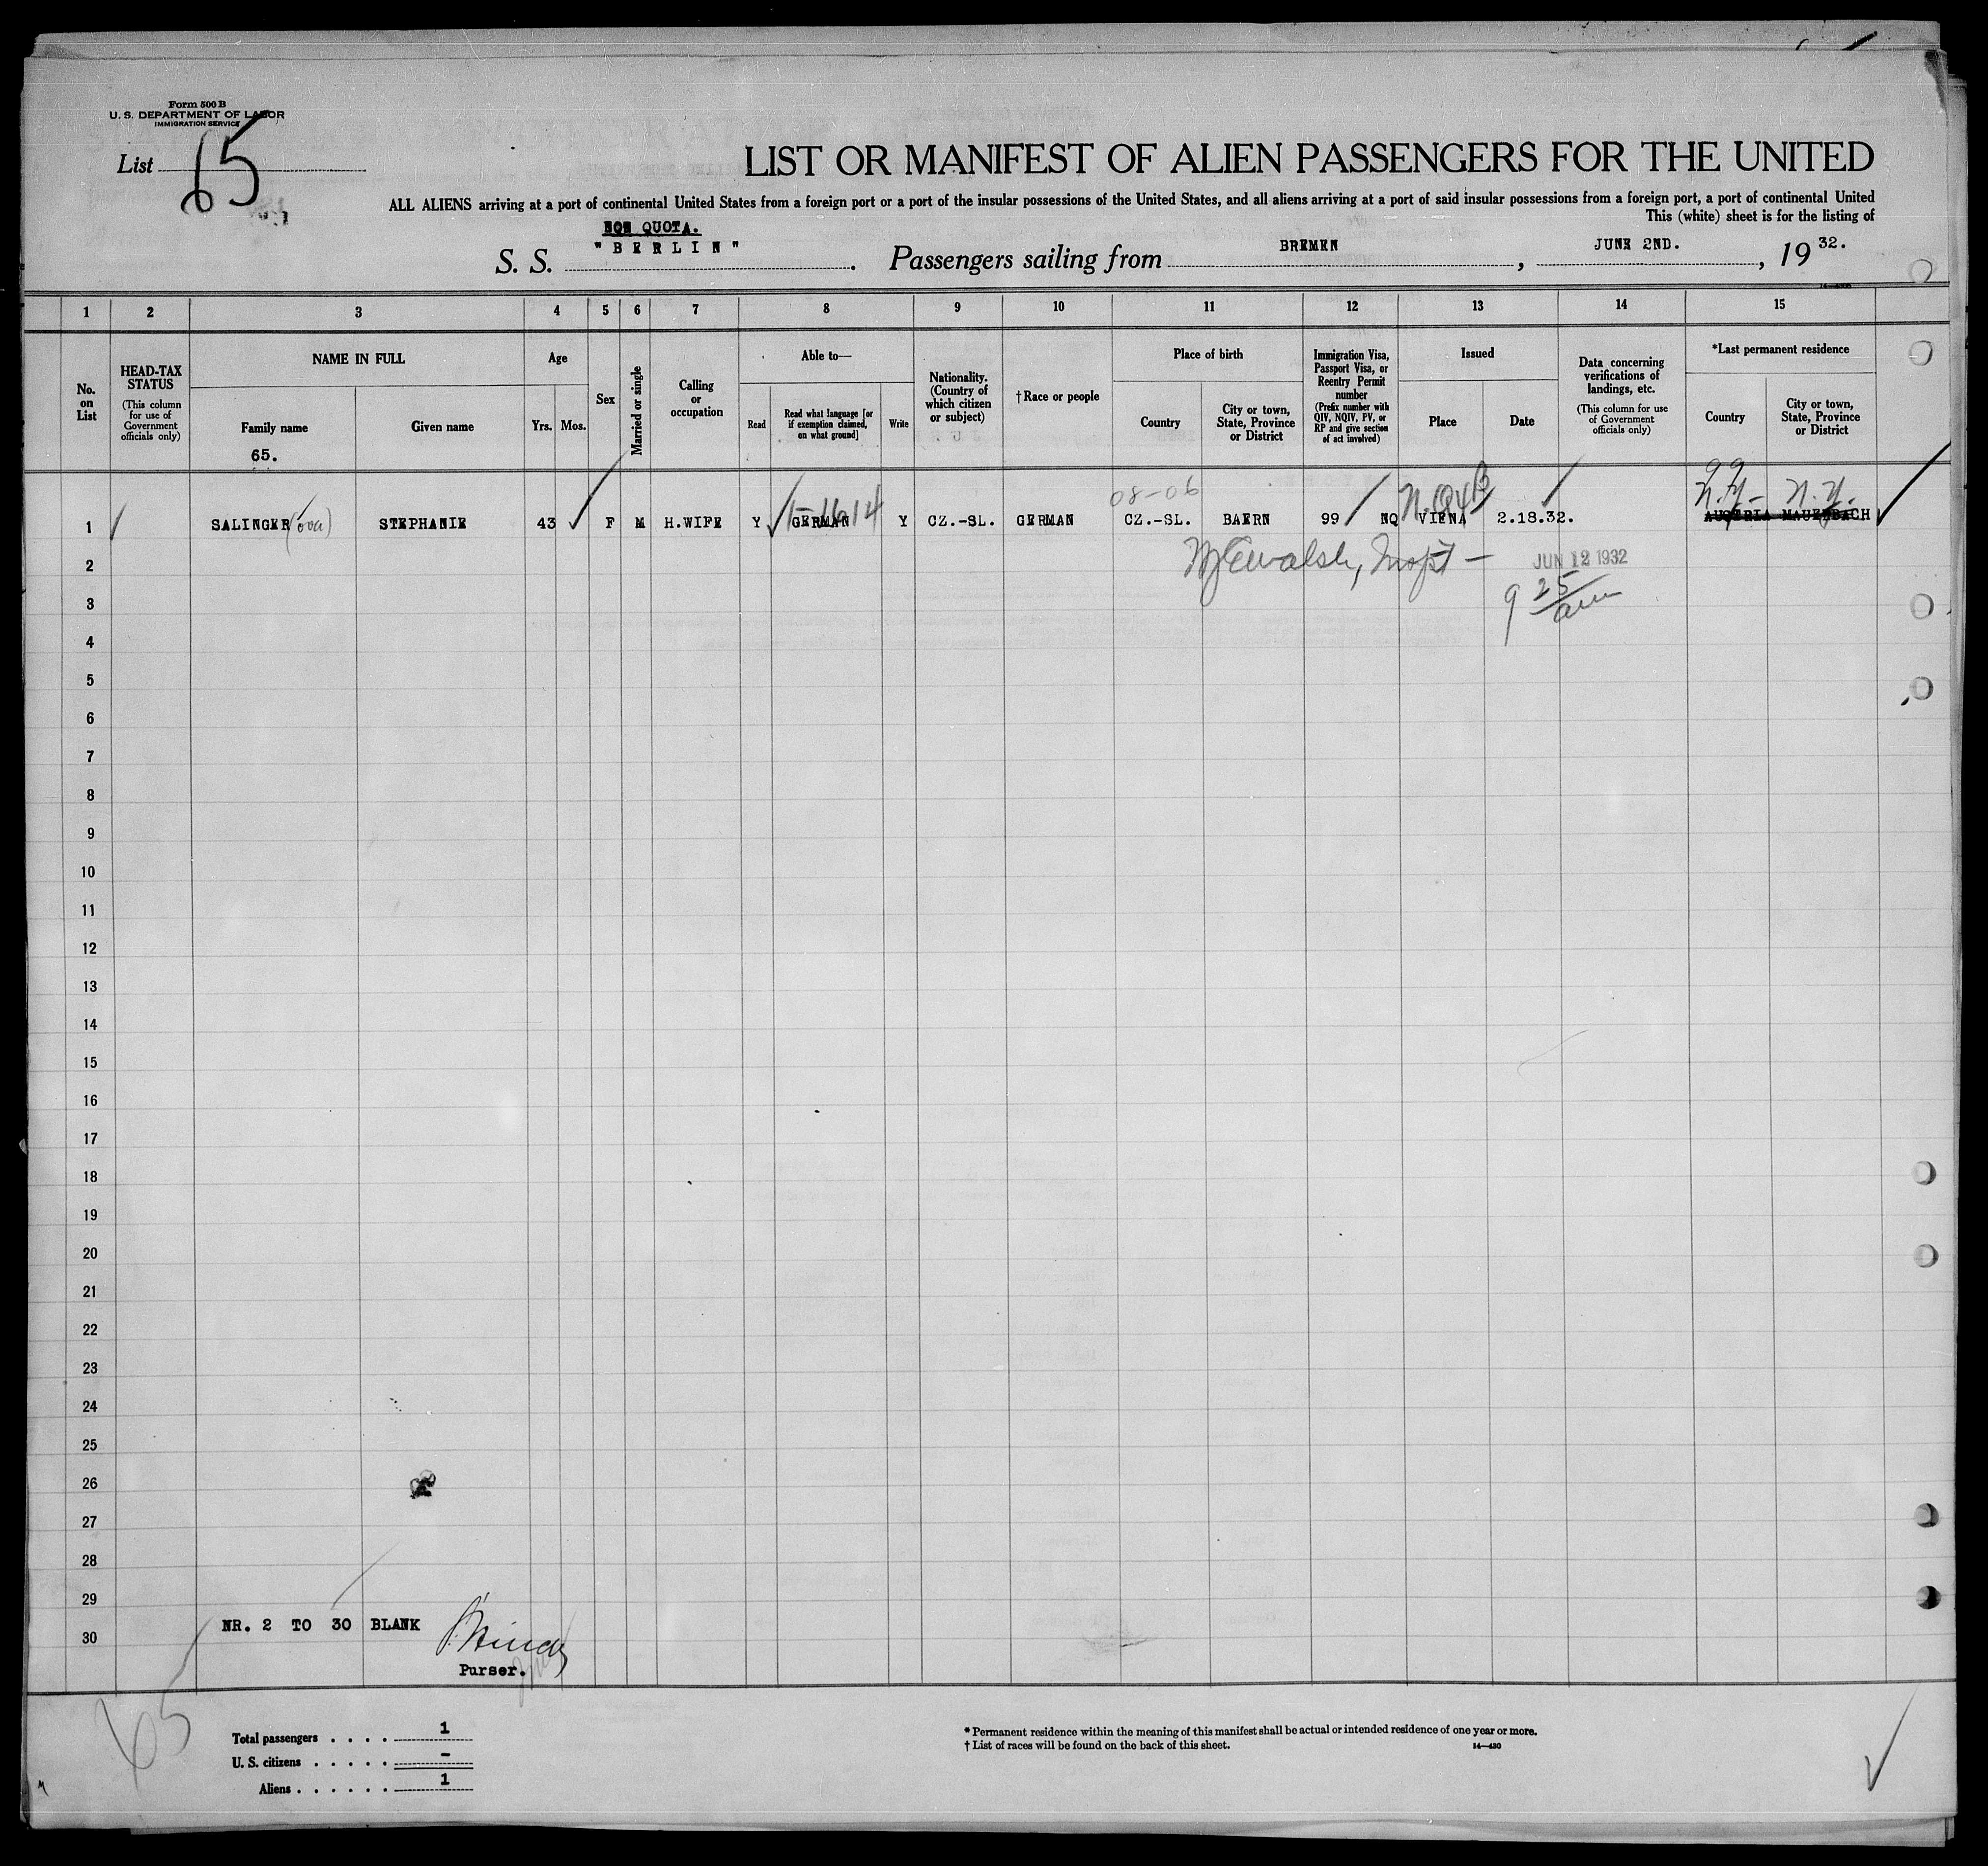 Form 500 B
U. S. DEPARTMENT OF LABOR
IMMIGRATION SERVICE
List 65
LIST OR MANIFEST OF ALIEN PASSENGERS FOR THE UNITED
ALL ALIENS arriving at a port of continental United States from a foreign port or a port of the insular possessions of the United States, and all aliens arriving at a port of said insular possessions from a foreign port, a port of continental United
This (white) sheet is for the listing of
NON QUOTA.
S. S. "BERLIN". Passengers sailing from BREMEN, JUNE 2ND., 19 32.
14—430b
1 2 3 4 5 6 7 8 9 10 11 12 13 14 15
No. on List
HEAD-TAX STATUS (This column for use of Government officials only)
NAME IN FULL
Family name
65.
Given name
Age
Yrs. Mos.
Sex
Married or single
Calling or occupation
Able to—
Read
Read what language [or if exemption claimed, on what ground]
Write
Nationality. (Country of which citizen or subject)
† Race or people
Place of birth
Country
City or town, State, Province or District
Immigration Visa, Passport Visa, or Reentry Permit number (Prefix number with QIV, NQIV, PV, or RP and give section of act involved)
Issued
Place
Date
Data concerning verifications of landings, etc. (This column for use of Government officials only)
*Last permanent residence
Country
City or town, State, Province or District
08-06 N.Y- N.Y.
1 SALINGER (ova) STEPHANIE 43 F M H.WIFE Y GERMAN Y CZ.-SL. GERMAN CZ.-SL. BAERN 99 NQ VIENA 2.18.32. AUSTRIA MAUERBACH
Walsh, Inspt — JUN 12 1932
9 25 am
2
3
4
5
6
7
8
9
10
11
12
13
14
15
16
17
18
19
20
21
22
23
24
25
26
27
28
29
NR. 2 TO 30 BLANK
30
Purser.
65
Total passengers . . . . 1
U. S. citizens . . . . . –
Aliens . . . . . . 1
* Permanent residence within the meaning of this manifest shall be actual or intended residence of one year or more.
† List of races will be found on the back of this sheet.
14—430